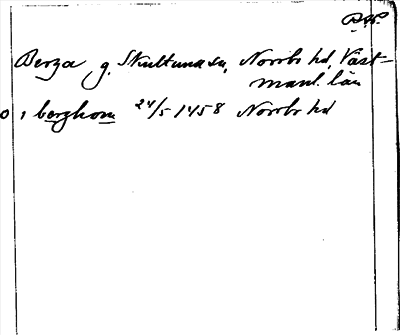 Berga g. Skultuna sn, Norrbo hd, Väst-
manl. län
i berghom 24/5 1458 Norrbo hd